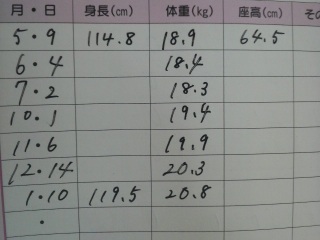 月・日 身長(cm) 体重(kg) 座高(cm) その
5・9 114.8 18.9 64.5
6・4 18.4
7・2 18.3
10.1 19.4
11・6 19.9
12・14 20.3
1・10 119.5 20.8
・